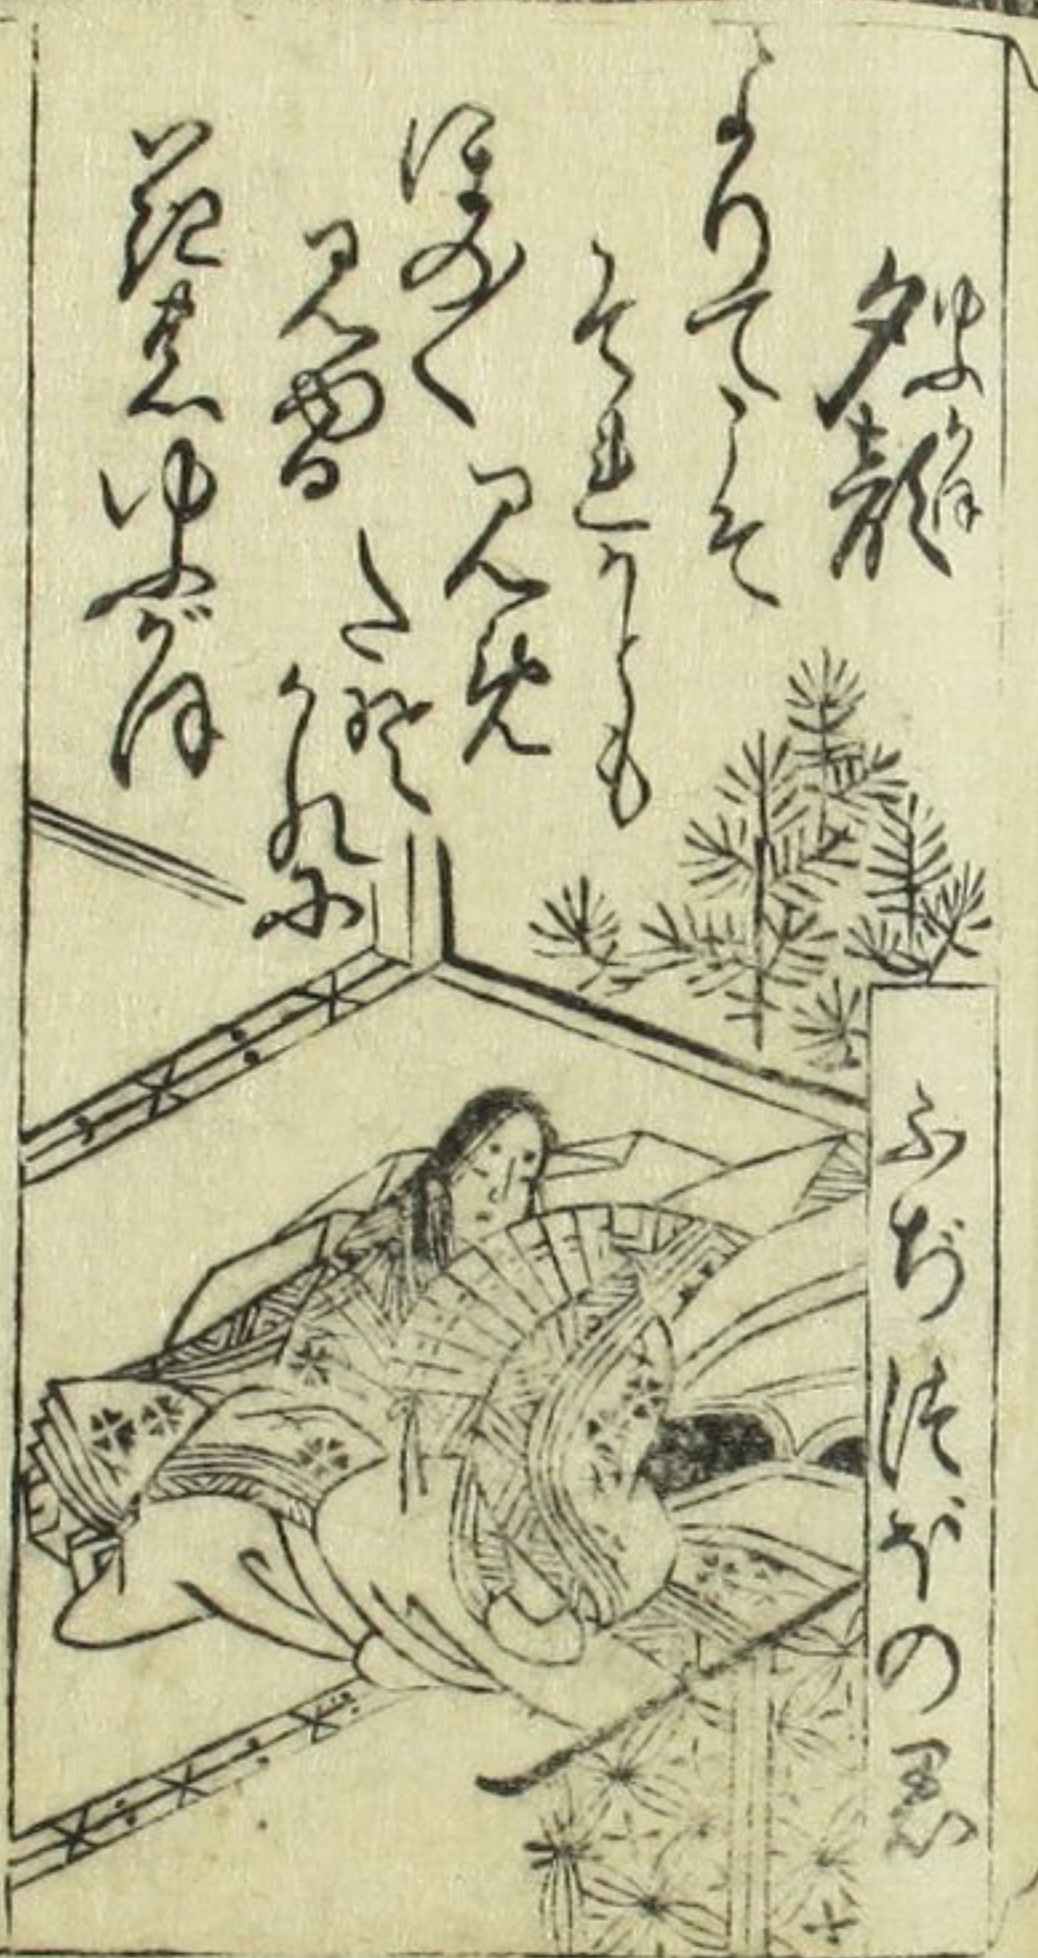 夕顔
ゆふかほ
よりてこそ
それかとも
見め
たそ
かれに
ほの〱
見つる
花のゆふがほ
ふぢつぼの